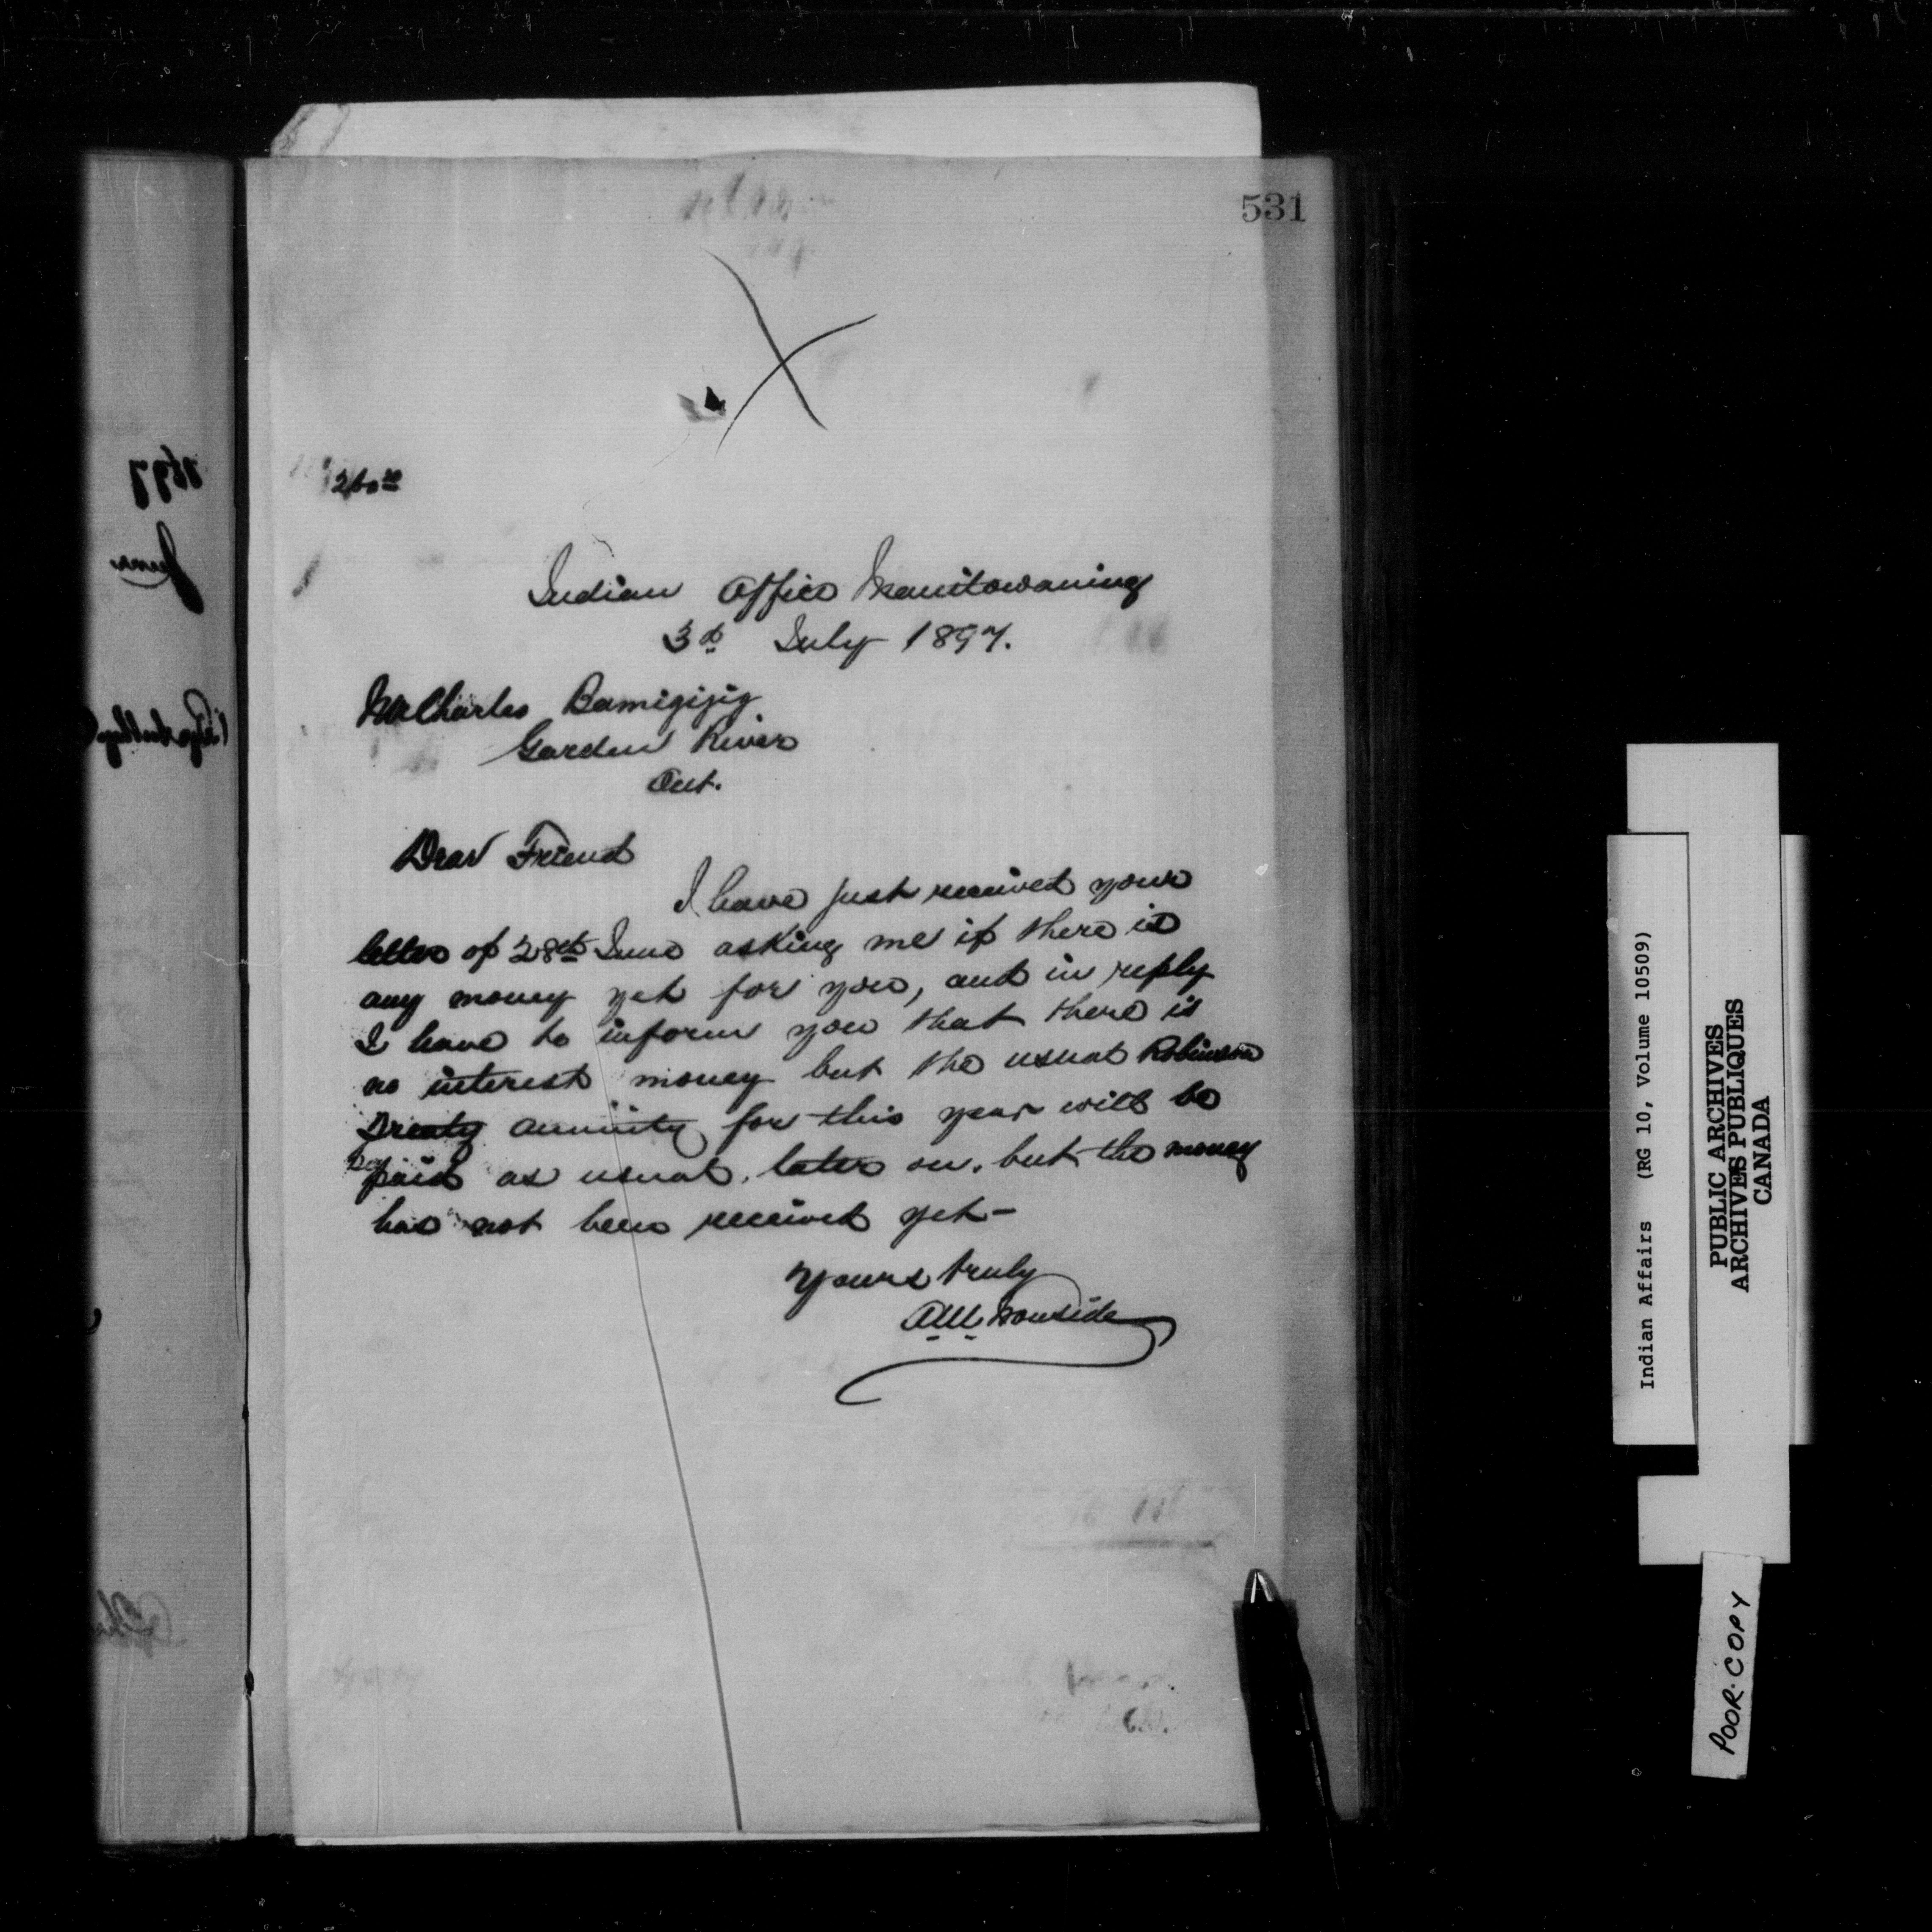 531
Indian Office Manitowaning
3d July 1897.
Mr Charles Bamigijig
Garden River
Ont.
Dear Friend
I have just received your
letter of 28th June asking me if there is
any money yet for you, and in reply
I have to inform you that there is
no interest money but the usual Robinson
Treaty annuity for this year will be
paid as usual, later on, but the money
has not been received yet-
Yours truly
AM Ironside
Indian Affairs (RG 10, Volume 10509)
PUBLIC ARCHIVES
ARCHIVES PUBLIQUES
CANADA
POOR COPY
1897
June